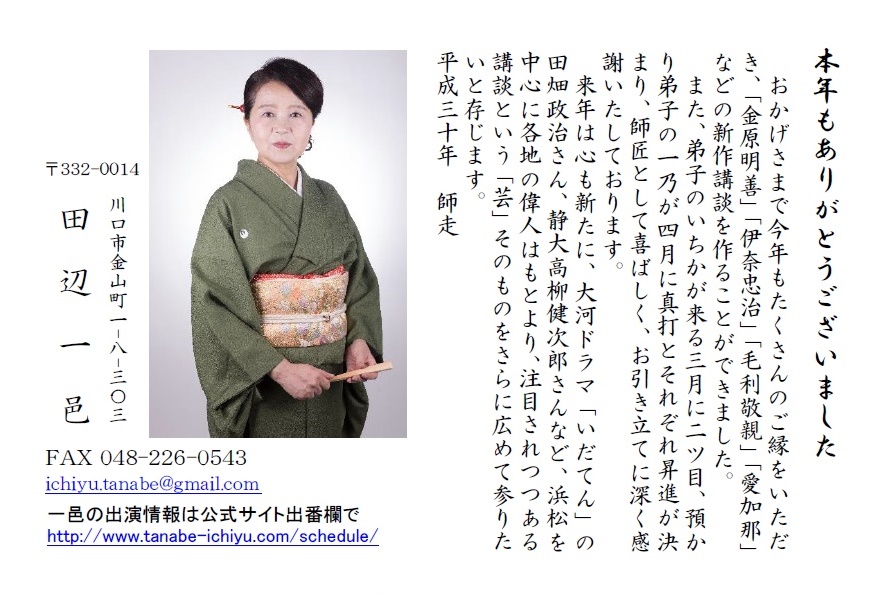 本年もありがとうございました
おかげさまで今年もたくさんのご縁をいただ
き、「金原明善」「伊奈忠治」「毛利敬親」「愛加那」
などの新作講談を作ることができました。
また、弟子のいちかが来る三月に二ツ目、預か
り弟子の一乃が四月に真打とそれぞれ昇進が決
まり、師匠として喜ばしく、お引き立てに深く感
謝いたしております。
来年は心も新たに、大河ドラマ「いだてん」の
田畑政治さん、静大高柳健次郎さんなど、浜松を
中心に各地の偉人はもとより、注目されつつある
講談という「芸」そのものをさらに広めて参りた
いと存じます。
平成三十年　師走
〒332-0014
川口市金山町一-八-三〇三
田辺一邑
FAX 048-226-0543
ichiyu.tanabe@gmail.com
一邑の出演情報は公式サイト出番欄で
http://www.tanabe-ichiyu.com/schedule/